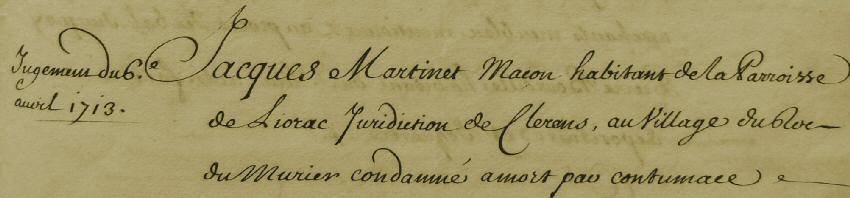 Jugement du 6.e
avril 1713.
Jacques Martinet Macon habitant de la Parroisse
de Liorac Juridiction de Clerans, au Village du Roc
du Murier condamné a mort par contumace